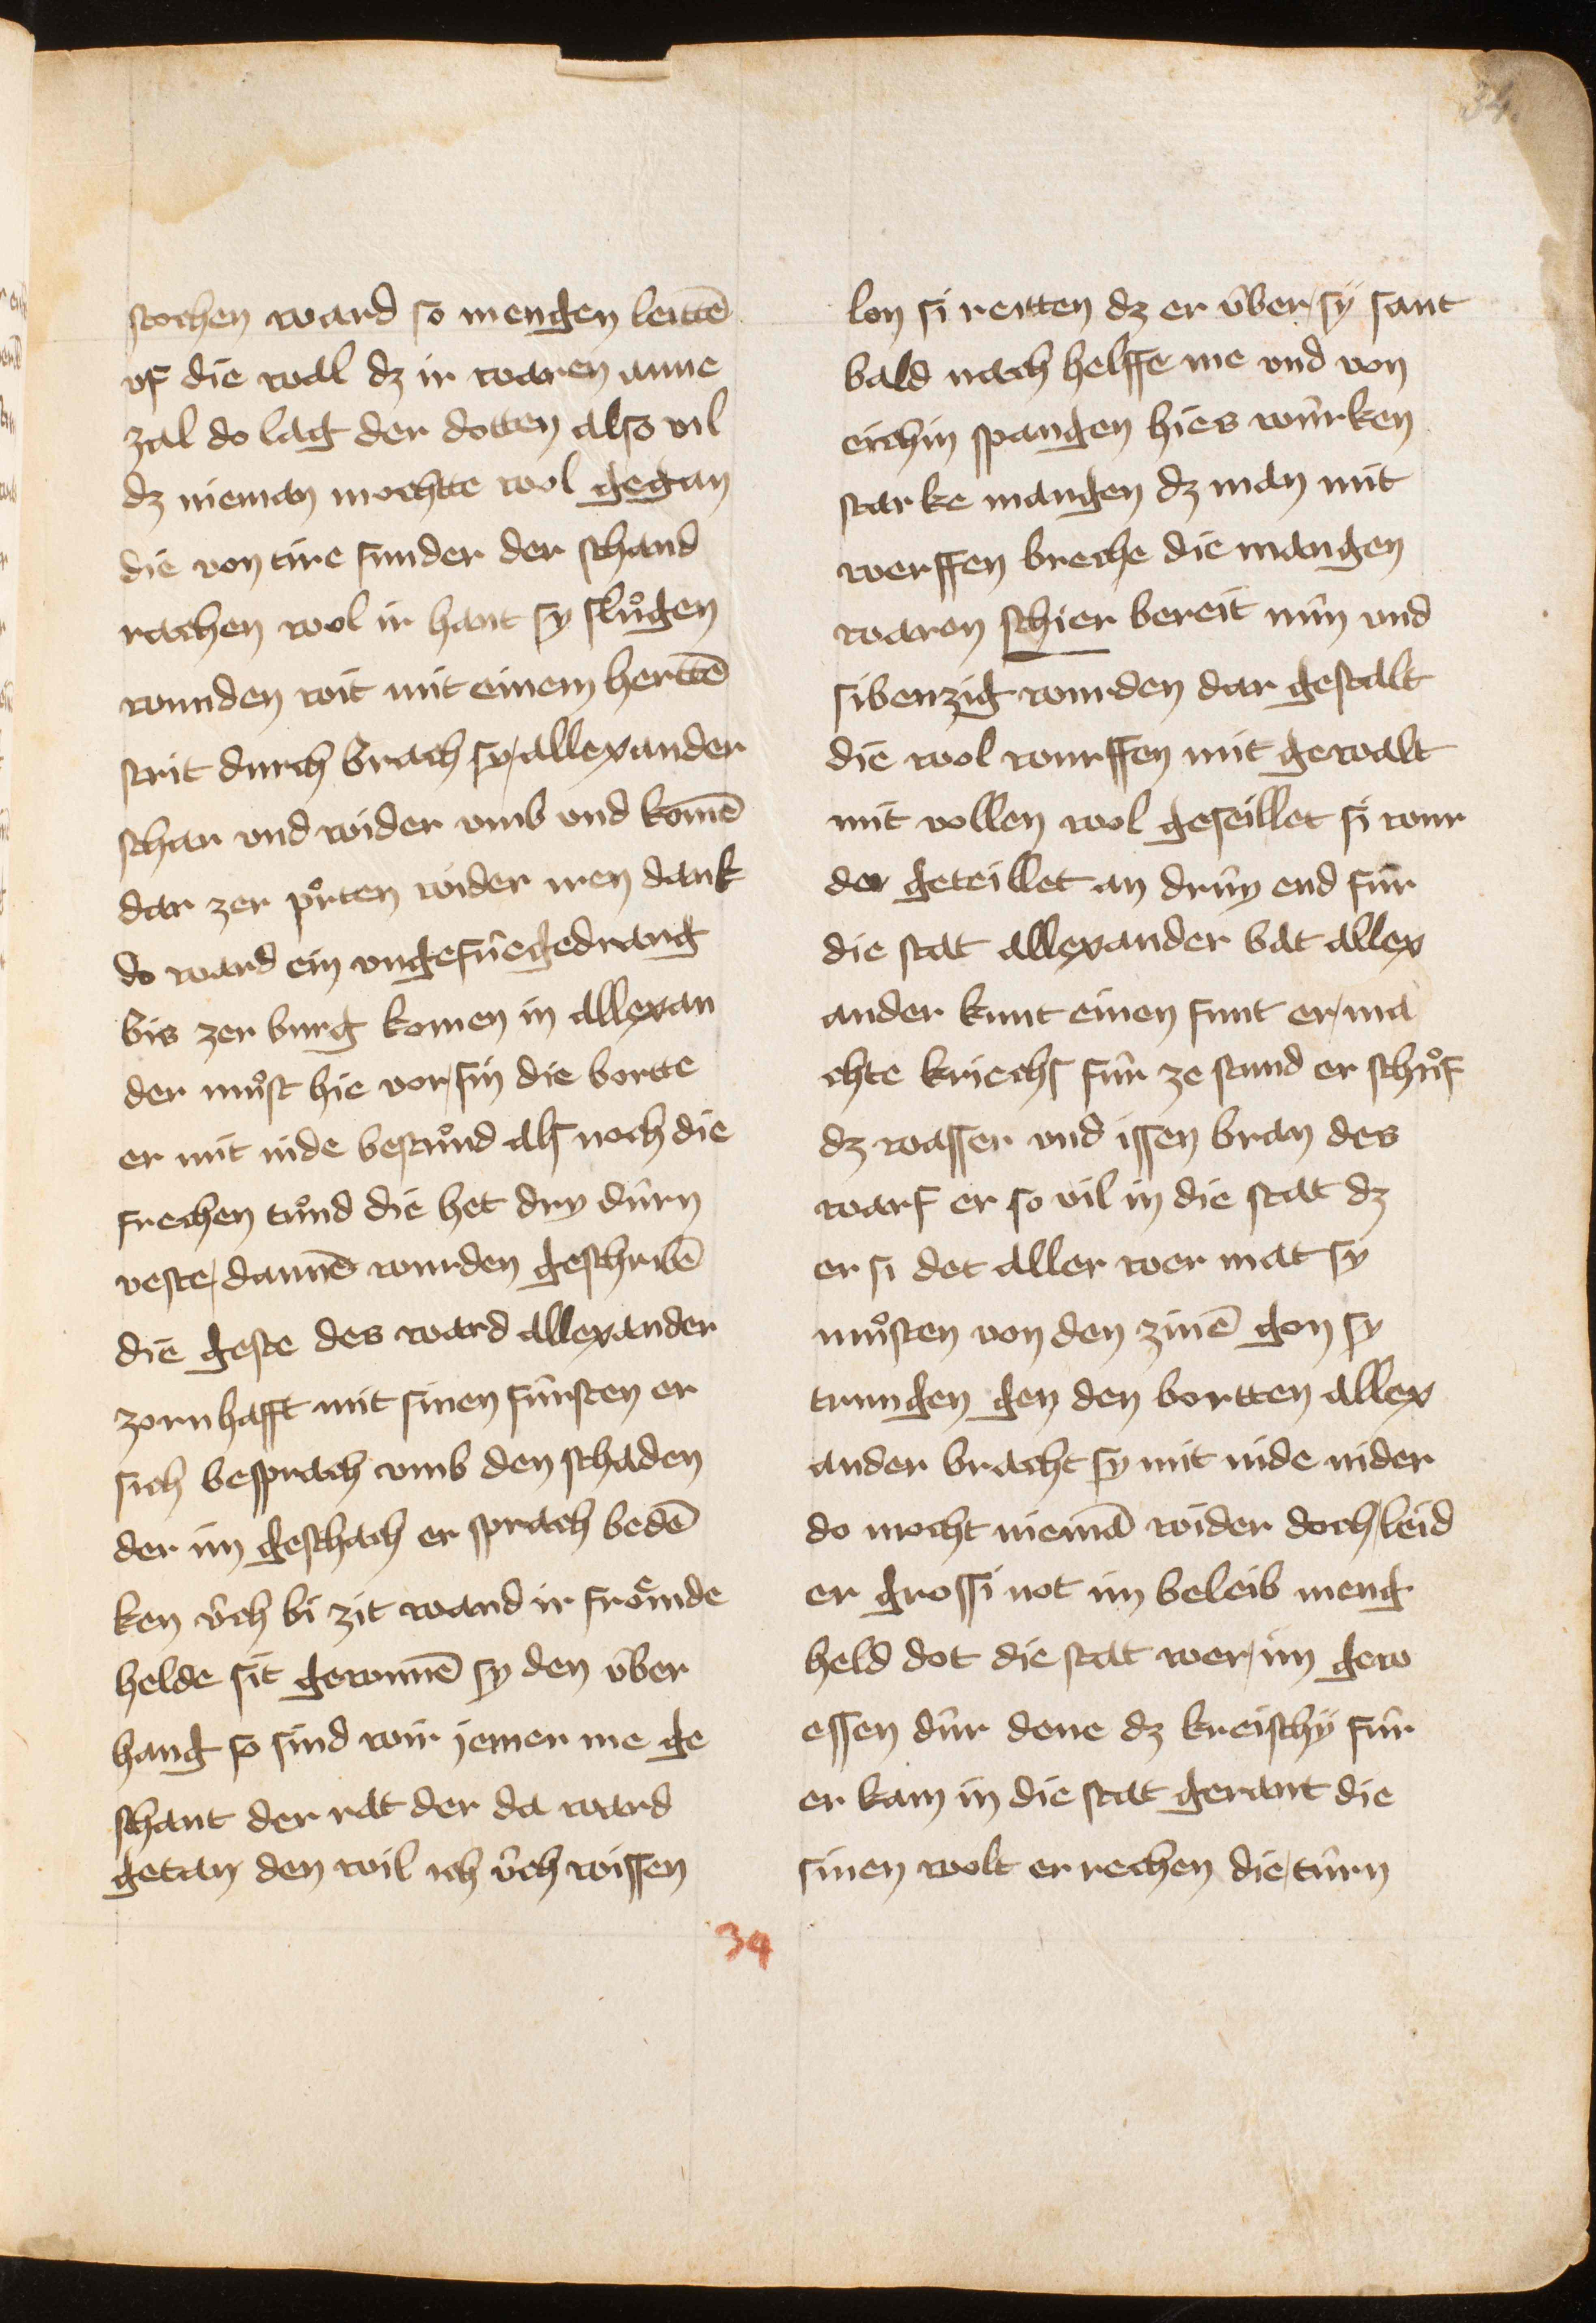 34.
stochen ward so mengen leittē
vf die wal dz ir waren anne
zal do lag der dotten also vil
dz nieman mochtte wol gegan
die von tire sunder der schand
rachen wol ir hant sy slůgen
wunden wit mit einem herttē
strit durch brach sy allexander
schar vnd wider vmb vnd komē
dar zer porten wider iren dank
do ward ein vngefüegedrang
bis zer burg komen in allexan
der můst hie vor sin die bortte
er mit nide bestůnd als noch die
frechen tůnd die het dry dürn
veste dannē wurden geschribē
die geste des ward allexander
zornhafft mit sinen fürsten er
sich besprach vmb den schaden
der im geschach er sprach bedē
ken üch bi zit wand ir frömde
helde sit gewunnē sy den über
hang so sind wir jemer me ge
schant der rat der da ward
getan den wil ich üch wissen
lon si reitten dz er über sÿ sant
bald nach helffe me vnd von
eichin spangen hies würken
starke mangen dz man mit
werffen breche die mangen
waren schier bereit nün vnd
sibenzig wurden dar gestalt
die wol wurffen mit gewalt
mit vollen wol geseillet si wur
der geteillet an drüy end für
die stat allexander bat allex
ander kunt einen funt er ma
chte kriechs für ze stund er schůf
dz wasser vnd issen bran des
warf er so vil in die stat dz
er si det aller wer mat sy
můsten von den zinē gon sy
trungen gen den bortten allex
ander bracht sy mit nide nider
do mocht niemā wider doch leid
er grossi not im beleib meng
held dot die stat wer im gew
essen dür dene dz kreischÿ für
er kam in die stat gerant die
sinen wolt er rechen die türn
34